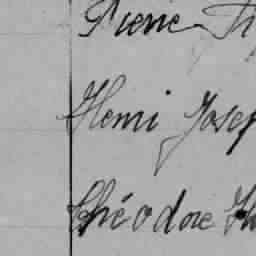 Pierre
Henri Josep
Théodore